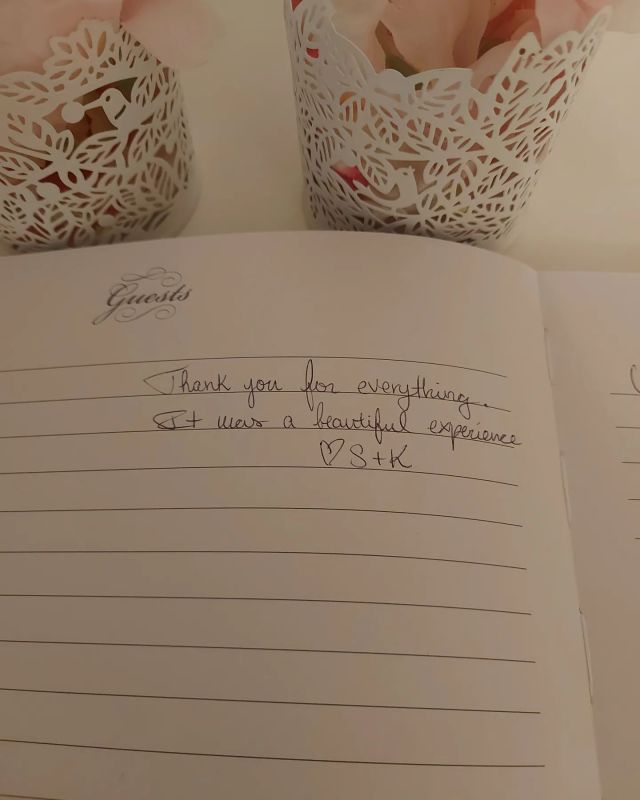 Guests
Thank you for everything.
It was a beautiful experience
♡ S+K